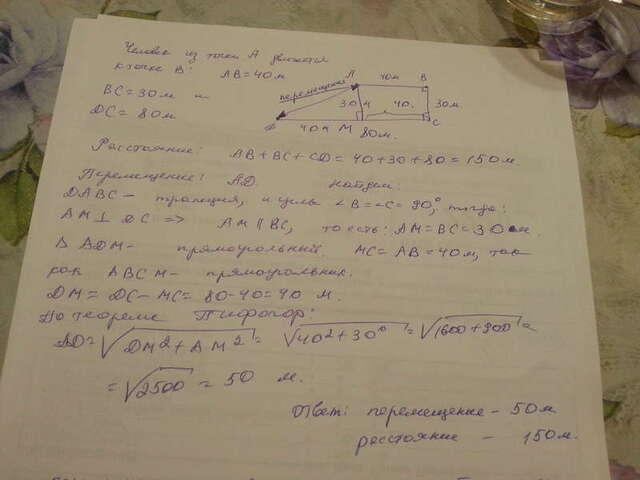 Человек из точки А движется
к точке В: АВ = 40 м
ВС = 30 м и
DC = 80 м
перемещение
А 40м В
30 м 40. 30м.
40 м М 80м. С
Расстояние: АВ + ВС + СD = 40 + 30 + 80 = 150 м.
Перемещение: АD. Найдём:
DABC – трапеция, и углы ∠B = ∠C = 90°, тогда:
АМ ⊥ DC => АМ ∥ ВС, то есть: АМ = ВС = 30 м.
Δ ADM – прямоугольный. МС = АВ = 40 м, так
как АВСМ – прямоугольник.
DM = DC – MC = 80 - 40 = 40 м.
По теореме Пифагор:
AD = √DM² + AM² = √40² + 30² = √1600 + 900 =
= √2500 = 50 м.
Ответ: перемещение – 50 м
расстояние – 150 м.